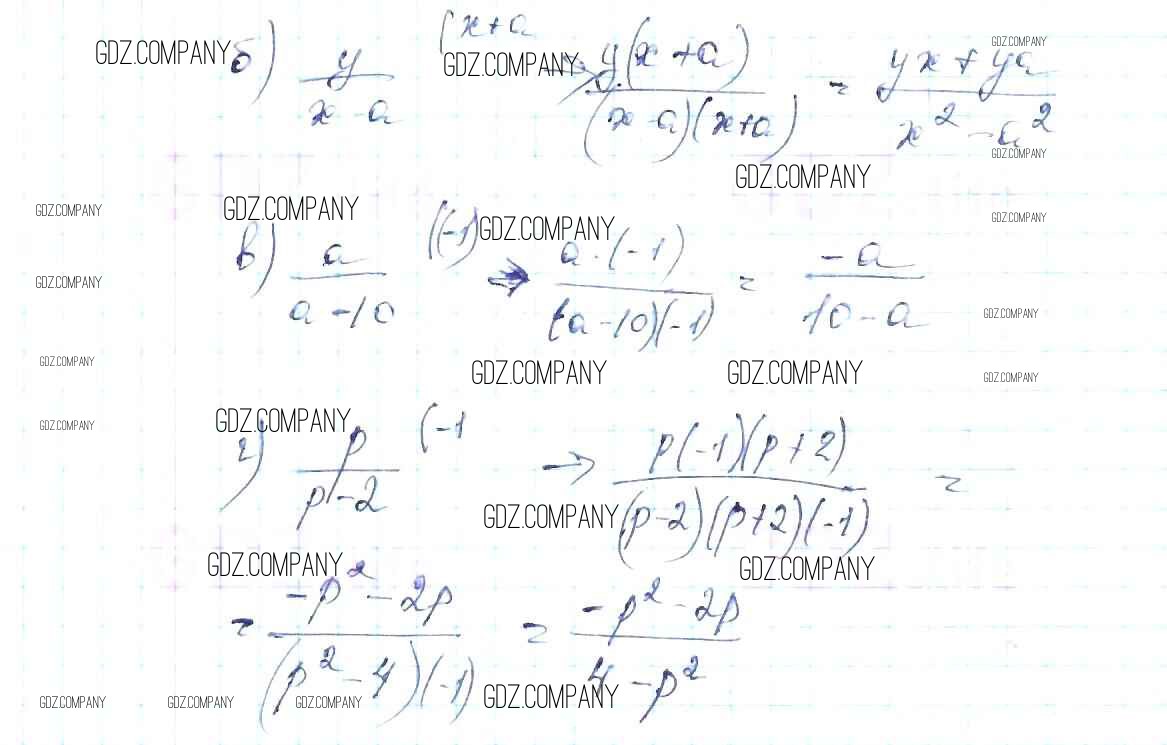 GDZ.COMPANY б) y/(x-a) (x+a GDZ.COMPANY → y(x+a)/((x-a)(x+a)) = (yx+ya)/(x²-a²) GDZ.COMPANY
GDZ.COMPANY
GDZ.COMPANY
GDZ.COMPANY GDZ.COMPANY GDZ.COMPANY
в) a/(a-10) ((-1) GDZ.COMPANY → a·(-1)/((a-10)(-1)) = -a/(10-a)
GDZ.COMPANY GDZ.COMPANY
GDZ.COMPANY GDZ.COMPANY GDZ.COMPANY GDZ.COMPANY
GDZ.COMPANY GDZ.COMPANY
г) p/(p-2) (-1 → p(-1)(p+2)/((p-2)(p+2)(-1)) =
GDZ.COMPANY
GDZ.COMPANY GDZ.COMPANY
= (-p²-2p)/((p²-4)(-1)) = (-p²-2p)/(4-p²)
GDZ.COMPANY GDZ.COMPANY GDZ.COMPANY GDZ.COMPANY